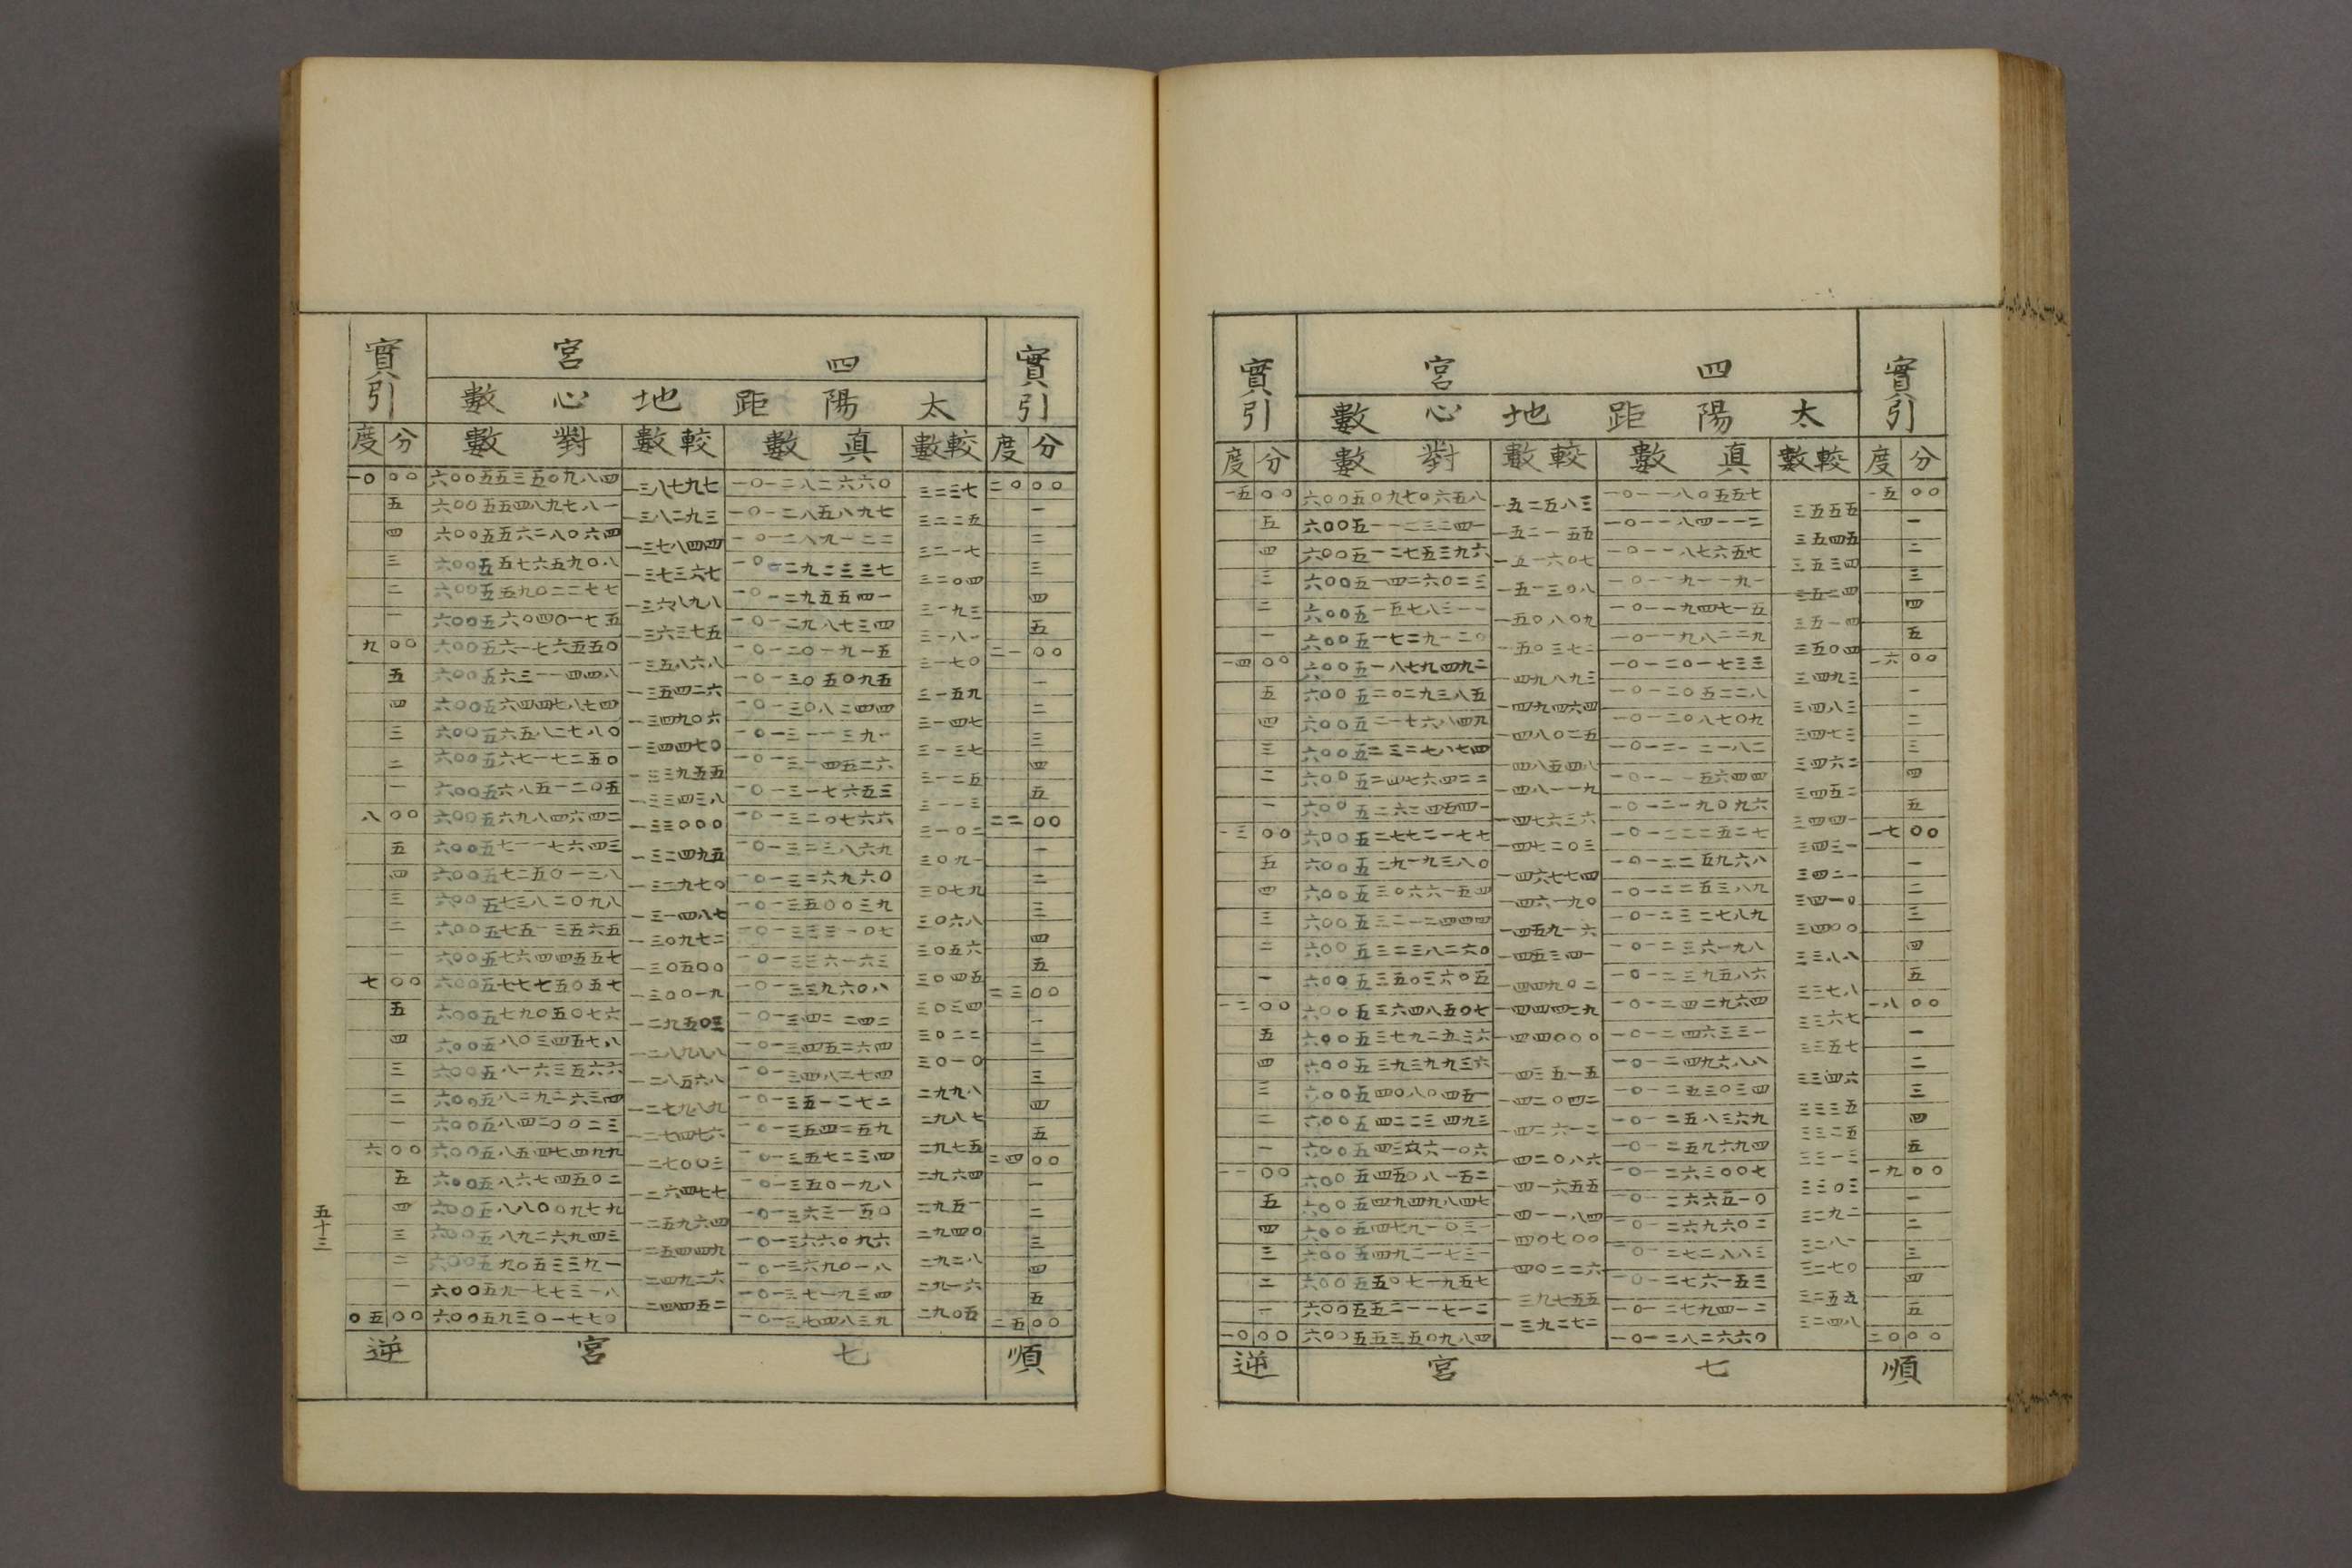 四宮
實引 太陽距地心數 實引
度 分 對數 較數 真數 較數 度 分
一五 〇〇 六〇〇五〇九七〇六五八 一五二五八三 一〇一一八〇五五七 三五五五 一五 〇〇
五 六〇〇五一一二三二四一 一五二一五五 一〇一一八四一一二 三五四五 一
四 六〇〇五一二七五三九六 一五一六〇七 一〇一一八七六五七 三五三四 二
三 六〇〇五一四二六〇二三 一五一三〇八 一〇一一九一一九一 三五二四 三
二 六〇〇五一五七八三一一 一五〇八〇九 一〇一一九四七一五 三五一四 四
一 六〇〇五一七二九一二〇 一五〇三七二 一〇一一九八二二九 三五〇四 五
一四 〇〇 六〇〇五一八七九四九二 一四九八九三 一〇一二〇一七三三 三四九三 一六 〇〇
五 六〇〇五二〇二九三八五 一四九四六四 一〇一二〇五二二八 三四八三 一
四 六〇〇五二一七六八四九 一四八〇二五 一〇一二〇八七〇九 三四七三 二
三 六〇〇五二三二七八七四 一四八五四八 一〇一二一二一八二 三四六二 三
二 六〇〇五二四七六四二二 一四八一一九 五六四四 三四五二 四
一 六〇〇五二六二四五四一 一四七六三六 一〇一二一九〇九六 三四四一 五
一三 〇〇 六〇〇五二七七二一七七 一四七二〇三 一〇一二二二五二七 三四三一 一七 〇〇
五 六〇〇五二九一九三八〇 一四六七七四 一〇一二二五九六八 三四二一 一
四 六〇〇五三〇六六一五四 一四六一九〇 一〇一二二五三八九 三四一〇 二
三 六〇〇五三二一二四四四 一四五九一六 一〇一二三二七八九 三四〇〇 三
二 六〇〇五三二三八二六〇 一四五三四一 一〇一二三六一九八 三三八八 四
一 六〇〇五三五〇三六〇五 一四四九〇二 一〇一二三九五八六 三三七八 五
一二 〇〇 六〇〇五三六四八五〇七 一四四四二九 一〇一二四二九六四 三三六七 一八 〇〇
五 六〇〇五三七九二五三六 一四四〇〇〇 一〇一二四六三三一 三三五七 一
四 六〇〇五三九三九九三六 一四三五一五 一〇一二四九六八八 三三四六 二
三 六〇〇五四〇八〇四五一 一四二〇四二 一〇一二五三〇三四 三三三五 三
二 六〇〇五四二二三四九三 一四二六一二 一〇一二五八三六九 三三二五 四
一 六〇〇五四三六六一〇六 一四二〇八六 一〇一二五九六九四 三三一三 五
一一 〇〇 六〇〇五四五〇八一五二 一四一六五五 一〇一二六三〇〇七 三三〇三 一九 〇〇
五 六〇〇五四九四九八四七 一四一一八四 一〇一二六六五一〇 三二九二 一
四 六〇〇五四七九一〇三一 一四〇七〇〇 一〇一二六九六〇二 三二八一 二
三 六〇〇五四九二一七三一 一四〇二二六 一〇一二七二八八三 三二七〇 三
二 六〇〇五五〇七一九五七 一三九七五五 一〇一二七六一五三 三二五五 四
一 六〇〇五五二一一七一二 一三九二七二 一〇一二七九四一二 三二四八 五
一〇 〇〇 六〇〇五五三五〇九八四 一〇一二八二六六〇 二〇 〇〇
逆 七宮 順
四宮
實引 太陽距地心數 實引
度 分 對數 較數 真數 較數 度 分
一〇 〇〇 六〇〇五五三五〇九八四 一三八七九七 一〇一二八二六六〇 三二三七 二〇 〇〇
五 六〇〇五五四八九七八一 一三八二九三 一〇一二八五八九七 三二二五 一
四 六〇〇五五六二八〇六四 一三七八四四 一〇一二八九一二二 三二一七 二
三 六〇〇五五七六五九〇八 一三七三六七 一〇一二九二三三七 三二〇四 三
二 六〇〇五五九〇二二七七 一三六八九八 一〇一二九五五四一 三一九三 四
一 六〇〇五六〇四〇一七五 一三六三七五 一〇一二九八七三四 三一八一 五
九 〇〇 六〇〇五六一七六五五〇 一三五八六八 一〇一二〇一九一五 三一七〇 二一 〇〇
五 六〇〇五六三一一四四八 一三五四二六 一〇一三〇五〇九五 三一五九 一
四 六〇〇五六四四七八七四 一三四九〇六 一〇一三〇八二四四 三一四七 二
三 六〇〇五六五八二七八〇 一三四四七〇 一〇一三一一三九一 三一三七 三
二 六〇〇五六七一七二五〇 一三三九五五 一〇一三一四五二六 三一二五 四
一 六〇〇五六八五一二〇五 一三三四三八 一〇一三一七六五三 三一一三 五
八 〇〇 六〇〇五六九八四六四二 一三三〇〇〇 一〇一三二〇七六六 三一〇二 二二 〇〇
五 六〇〇五七一一七六四三 一三二四九五 一〇一三二三八六九 三〇九一 一
四 六〇〇五七二五〇一二八 一三二九七〇 一〇一三二六九六〇 三〇七九 二
三 六〇〇五七三八二〇九八 一三一四八七 一〇一三五〇〇三九 三〇六八 三
二 六〇〇五七五一三五六五 一三〇九七二 一〇一三三三一〇七 三〇五六 四
一 六〇〇五七六四四五五七 一三〇五〇〇 一〇一三三六一六三 三〇四五 五
七 〇〇 六〇〇五七七七五〇五七 一三〇〇一九 一〇一三三九六〇八 三〇三四 二三 〇〇
五 六〇〇五七九〇五〇七六 一二九五〇三 一〇一三四二二四二 三〇二二 一
四 六〇〇五八〇三四五七八 一二八九八八 一〇一三四五二六四 三〇一〇 二
三 六〇〇五八一六三五六六 一二八五六八 一〇一三四八二七四 二九九八 三
二 六〇〇五八二九二六三四 一二七九八九 一〇一三五一二七二 二九八七 四
一 六〇〇五八四二〇〇二三 一二七四七六 一〇一三五四二五九 二九七五 五
六 〇〇 六〇〇五八五四七四九九 一二七〇〇三 一〇一三五七二三四 二九六四 二四 〇〇
五 六〇〇五八六七四五〇二 一二六四七七 一〇一三五〇一九八 二九五一 一
四 六〇〇五八八〇〇九七九 一二五九六四 一〇一三六三一五〇 二九四〇 二
三 六〇〇五八九二六九四三 一二五四四九 一〇一三六六〇九六 二九二八 三
二 六〇〇五九〇五三三九一 一二四九二六 一〇一三六九〇一八 二九一六 四
一 六〇〇五九一七七三一八 一二四四五二 一〇一三七一九三四 二九〇五 五
〇五 〇〇 六〇〇五九三〇一七七〇 一〇一三七四八三九 二五 〇〇
逆 七宮 順
五十三